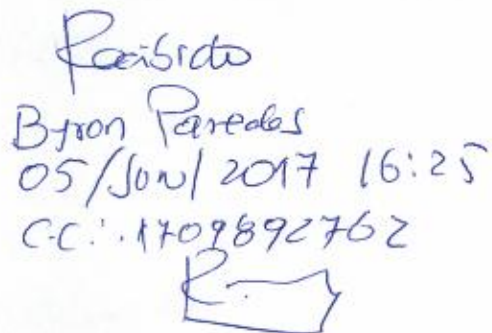 Recibido
Byron Paredes
05/JUN/2017 16:25
C.C.: 1709892762